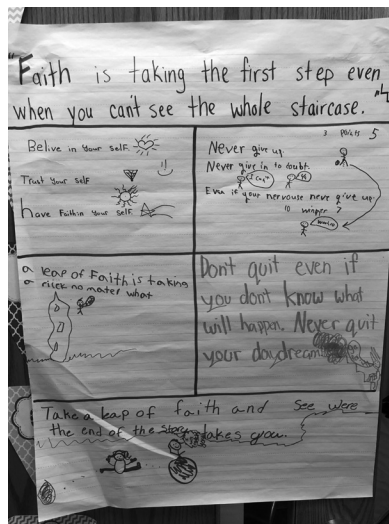 "Faith is taking the first step even
when you can't see the whole staircase."
Belive in your self
Trust your self
have Faith in your self
3 Points 5
Never give up.
Never give in to doubt.
Even if your nervouse never give up.
10 winner 7
a leap of Faith is taking
a risck no mater what
Dont quit even if
you dont know what
will happen. Never quit
your daydream
Take a leap of faith and see were
the end of the story takes you.